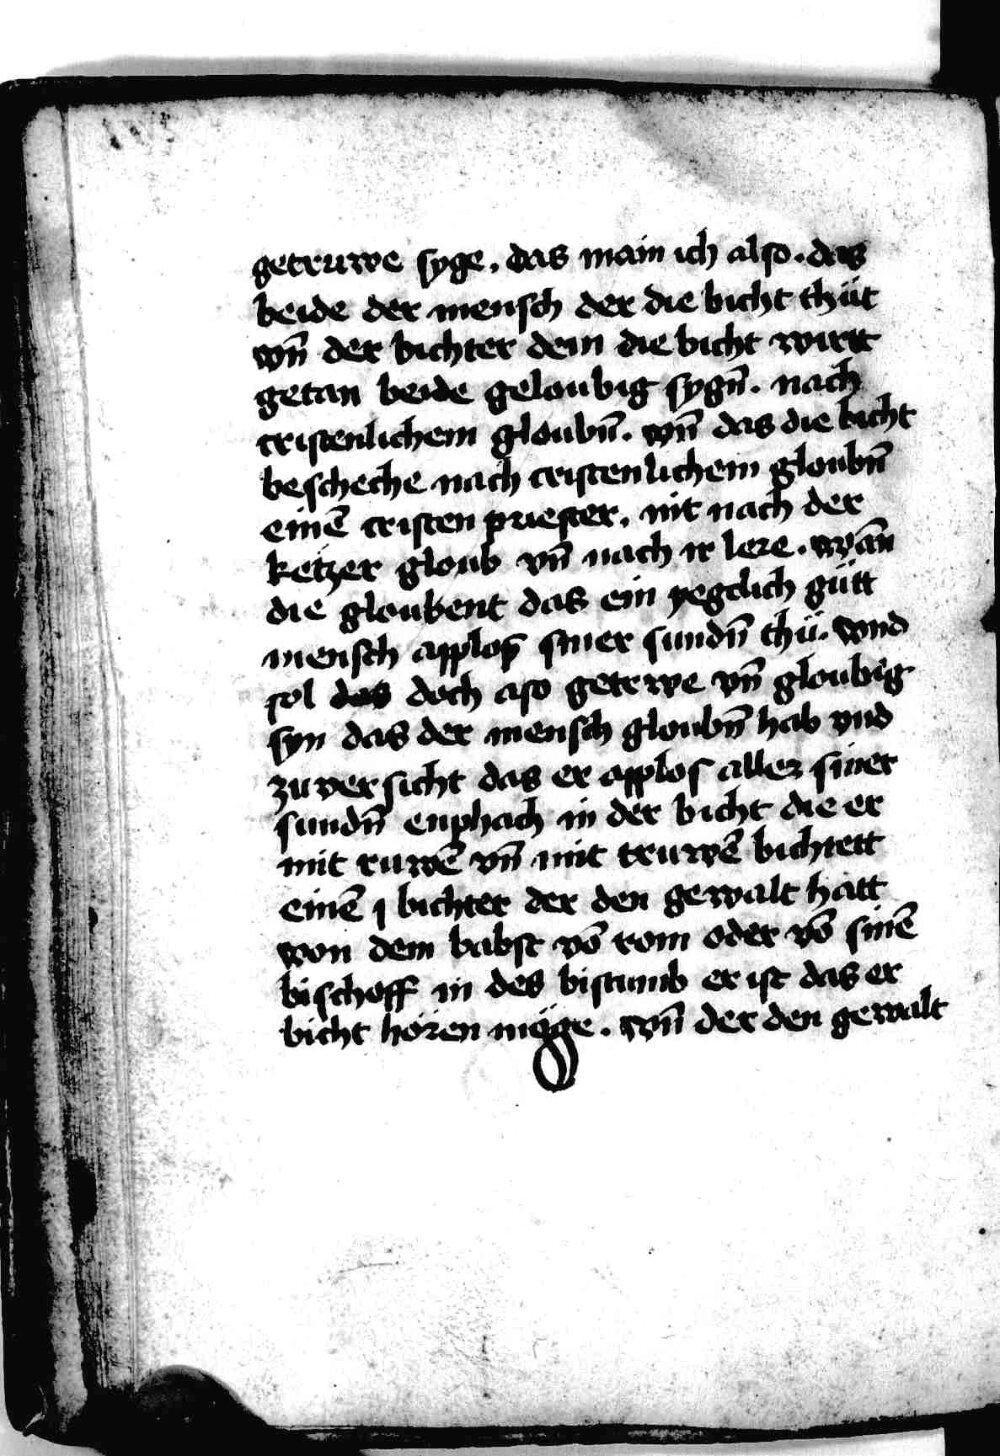 getruwe syge. das main ich also. das
beide der mensch der die bicht thüt
vn̄ der bichter dem die bicht wirtt
getan beide geloubig sygn̄. nach
cristenlichem gloubn̄. vn̄ das die bicht
bescheche nach cristenlichem gloubn̄
einē cristen priester. nit nach der
ketzer gloub vn̄ nach ir lere. wān
die gloubent das ein yegclich gütt
mensch applos siner sundn̄ thü. vnd
sol das doch aso getrwe vn̄ gloubig
syn das der mensch gloubn̄ hab vnd
zuversicht das er applos aller siner
sundn̄ enphach in der bicht die er
mit ruwē vn̄ mit truwē bichtett
einē bichter der den gewalt hatt
von dem babst vō rom oder vō sinē
bischoff in des bistumb er ist das er
bicht hören möge. vn̄ der den gewalt